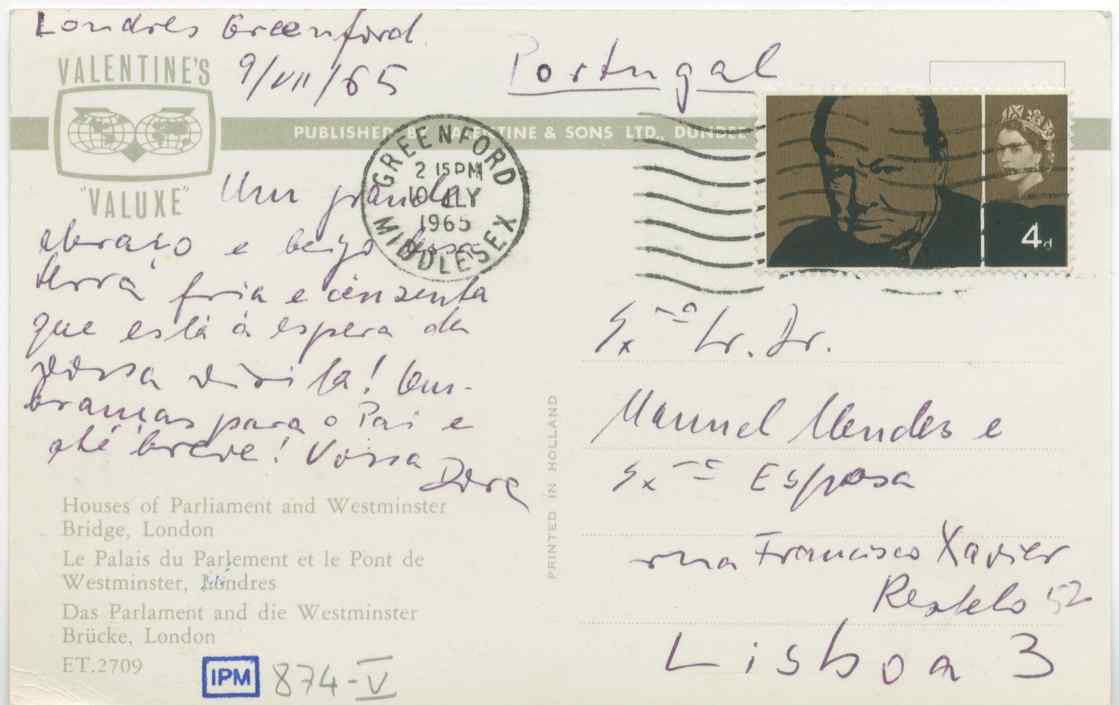 Londres Greenford.
9/VII/65
Portugal
VALENTINE'S
"VALUXE"
PUBLISHED BY VALENTINE & SONS LTD., DUNDEE
GREENFORD
2 15 PM
10 JLY
1965
MIDDLESEX
4d
Um grande
abraço e beijo
terra fria e cinzenta
que está à espera da
vossa visita! Lem-
branças para o Pai e
até breve! Vossa
Dora
Houses of Parliament and Westminster
Bridge, London
Le Palais du Parlement et le Pont de
Westminster, Londres
Das Parlament and die Westminster
Brücke, London
ET.2709
IPM 874-V
PRINTED IN HOLLAND
Exmo Sr. Dr.
Manuel Mendes e
Exma Esposa
rua Francisco Xavier
Restelo 52
Lisboa 3